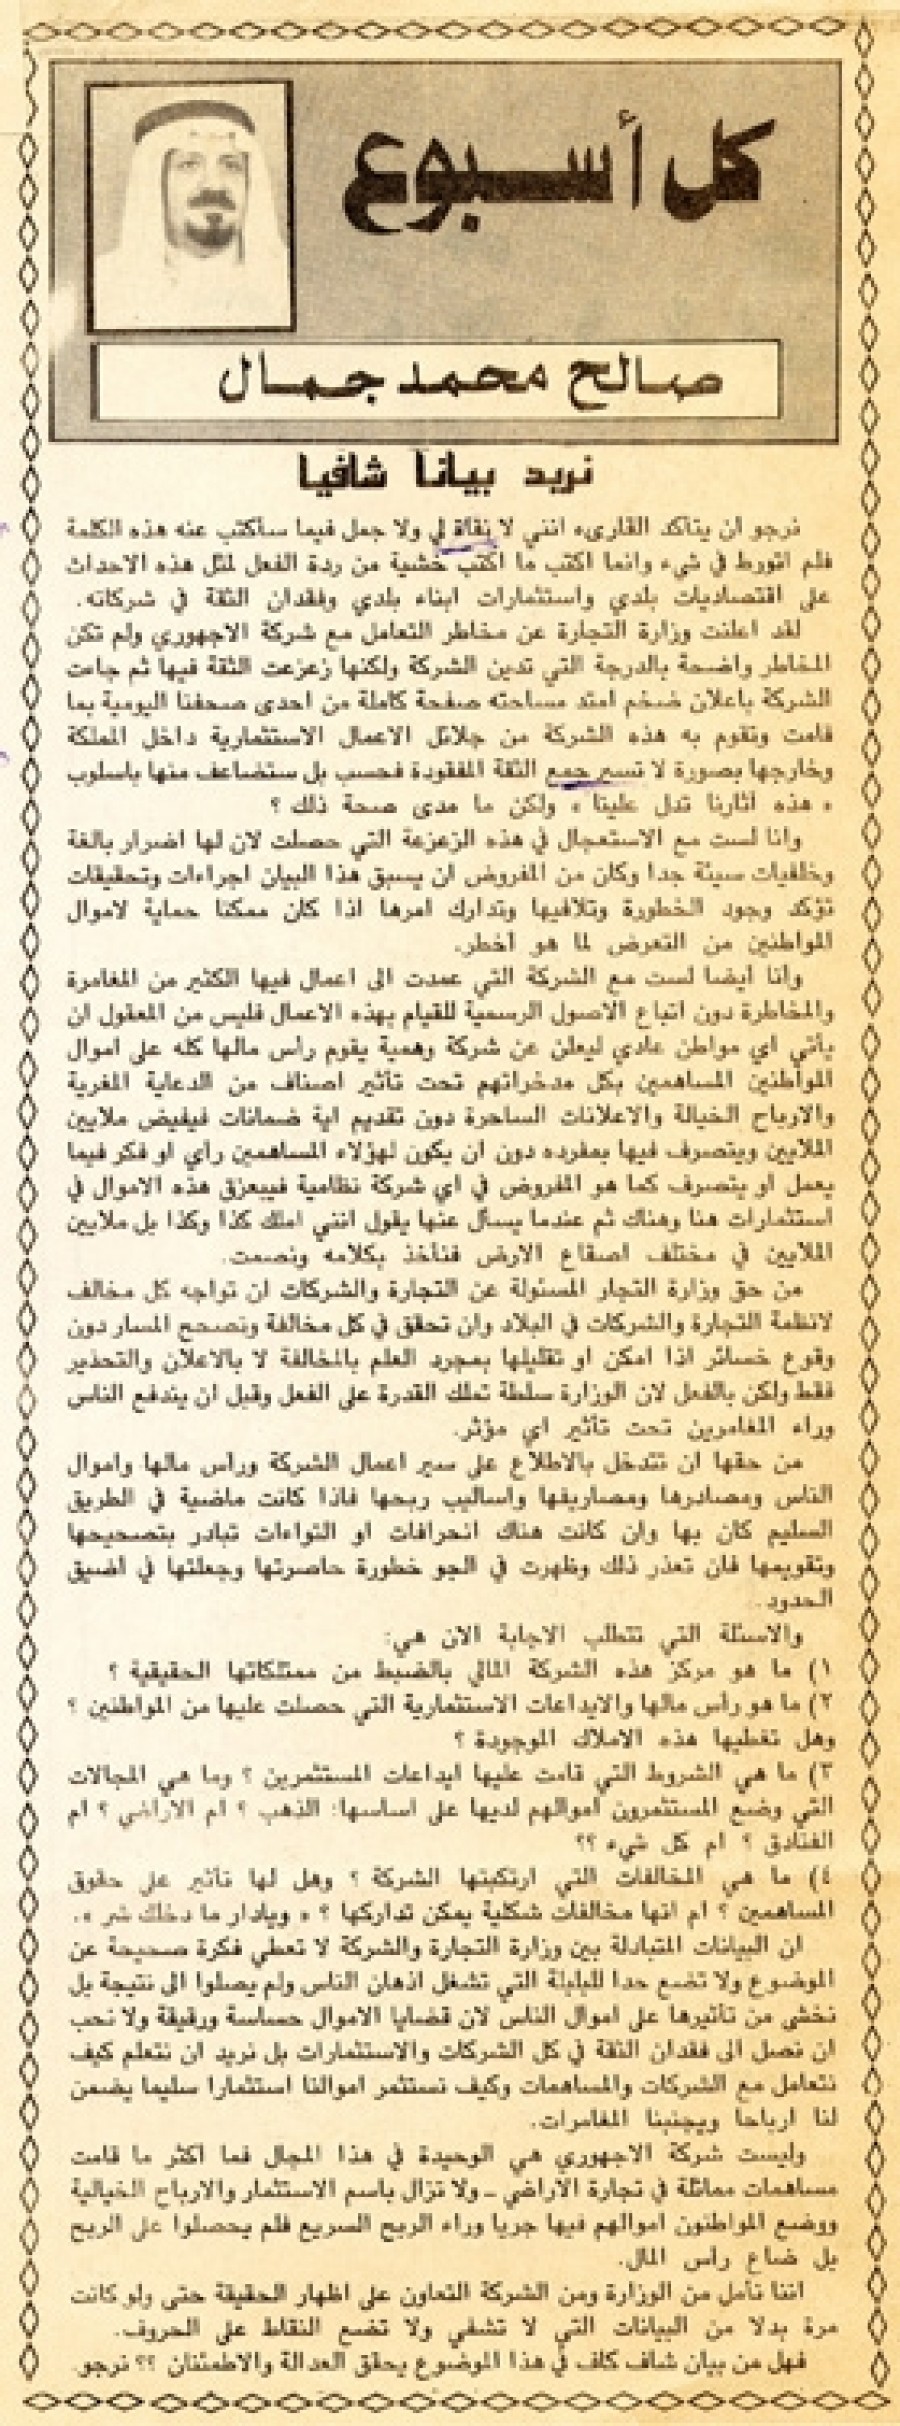 كل أسبوع
صالح محمد جمال
نريد بيانا شافيا
نرجو ان يتأكد القارىء انني لا نقاة لي ولا جمل فيما سأكتب عنه هذه الكلمة
فلم اتورط في شيء وانما اكتب ما اكتب خشية من ردة الفعل لمثل هذه الاحداث
على اقتصاديات بلدي واستثمارات ابناء بلدي وفقدان الثقة في شركاته.
لقد اعلنت وزارة التجارة عن مخاطر التعامل مع شركة الاجهوري ولم تكن
المخاطر واضحة بالدرجة التي تدين الشركة ولكنها زعزعت الثقة فيها ثم جاءت
الشركة باعلان ضخم امتد مساحته صفحة كاملة من احدى صحفنا اليومية بما
قامت وتقوم به هذه الشركة من جلائل الاعمال الاستثمارية داخل المملكة
وخارجها بصورة لا تسير جمع الثقة المفقودة فحسب بل ستضاعف منها باسلوب
« هذه آثارنا تدل علينا » ولكن ما مدى صحة ذلك ؟
وانا لست مع الاستعجال في هذه الزعزعة التي حصلت لان لها اضرار بالغة
وخلفيات سيئة جدا وكان من المفروض ان يسبق هذا البيان اجراءات وتحقيقات
تؤكد وجود الخطورة وتلافيها وتدارك امرها اذا كان ممكنا حماية لاموال
المواطنين من التعرض لما هو أخطر.
وأنا أيضا لست مع الشركة التي عمدت الى اعمال فيها الكثير من المغامرة
والمخاطرة دون اتباع الاصول الرسمية للقيام بهذه الاعمال فليس من المعقول ان
يأتي اي مواطن عادي ليعلن عن شركة وهمية يقوم رأس مالها كله على اموال
المواطنين المساهمين بكل مدخراتهم تحت تأثير اصناف من الدعاية المغرية
والارباح الخيالة والاعلانات الساحرة دون تقديم اية ضمانات فيفيض ملايين
الملايين ويتصرف فيها بمفرده دون ان يكون لهؤلاء المساهمين رأي او فكر فيما
يعمل او يتصرف كما هو المفروض في اي شركة نظامية فيبعزق هذه الاموال في
استثمارات هنا وهناك ثم عندما يسأل عنها يقول انني املك كذا وكذا بل ملايين
الملايين في مختلف اصقاع الارض فنأخذ بكلامه ونصمت.
من حق وزارة التجار المسئولة عن التجارة والشركات ان تواجه كل مخالف
لانظمة التجارة والشركات في البلاد وان تحقق في كل مخالفة وتصحح المسار دون
وقوع خسائر اذا امكن او تقليلها بمجرد العلم بالمخالفة لا بالاعلان والتحذير
فقط ولكن بالفعل لان الوزارة سلطة تملك القدرة على الفعل وقبل ان يندفع الناس
وراء المغامرين تحت تأثير اي مؤثر.
من حقها ان تتدخل بالاطلاع على سير اعمال الشركة ورأس مالها واموال
الناس ومصادرها ومصاريفها واساليب ربحها فاذا كانت ماضية في الطريق
السليم كان بها وان كانت هناك انحرافات او التواءات تبادر بتصحيحها
وتقويمها فان تعذر ذلك وظهرت في الجو خطورة حاصرتها وجعلتها في اضيق
الحدود.
والاسئلة التي تتطلب الاجابة الان هي:
١) ما هو مركز هذه الشركة المالي بالضبط من ممتلكاتها الحقيقية ؟
٢) ما هو رأس مالها والايداعات الاستثمارية التي حصلت عليها من المواطنين ؟
وهل تغطيها هذه الاملاك الموجودة ؟
٣) ما هي الشروط التي قامت عليها ايداعات المستثمرين ؟ وما هي المجالات
التي وضع المستثمرون اموالهم لديها على اساسها: الذهب ؟ ام الاراضي ؟ ام
الفنادق ؟ ام كل شيء ؟؟
٤) ما هي المخالفات التي ارتكبتها الشركة ؟ وهل لها تأثير على حقوق
المساهمين ؟ ام انها مخالفات شكلية يمكن تداركها ؟ « ويادار ما دخلك شر ».
ان البيانات المتبادلة بين وزارة التجارة والشركة لا تعطي فكرة صحيحة عن
الموضوع ولا تضع حدا للبلبلة التي تشغل اذهان الناس ولم يصلوا الى نتيجة بل
نخشى من تأثيرها على اموال الناس لان قضايا الاموال حساسة ورقيقة ولا نحب
ان نصل الى فقدان الثقة في كل الشركات والاستثمارات بل نريد ان نتعلم كيف
نتعامل مع الشركات والمساهمات وكيف نستثمر اموالنا استثمارا سليما يضمن
لنا ارباحا ويجنبنا المغامرات.
وليست شركة الاجهوري هي الوحيدة في هذا المجال فما اكثر ما قامت
مساهمات مماثلة في تجارة الاراضي ــ ولا تزال باسم الاستثمار والارباح الخيالية
ووضع المواطنون اموالهم فيها جريا وراء الربح السريع فلم يحصلوا على الربح
بل ضاع رأس المال.
اننا نأمل من الوزارة ومن الشركة التعاون على اظهار الحقيقة حتى ولو كانت
مرة بدلا من البيانات التي لا تشفي ولا تضع النقاط على الحروف.
فهل من بيان شاف كاف في هذا الموضوع يحقق العدالة والاطمئنان ؟؟ نرجو.